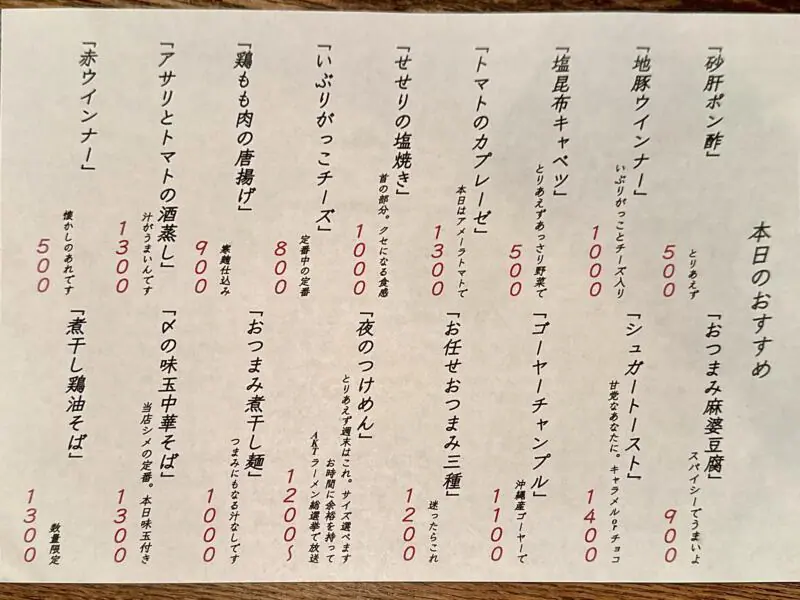 本日のおすすめ
「砂肝ポン酢」
とりあえず
500
「地豚ウインナー」
いぶりがっことチーズ入り
1000
「塩昆布キャベツ」
とりあえずあっさり野菜で
500
「トマトのカプレーゼ」
本日はアメーラトマトで
1300
「せせりの塩焼き」
首の部分。クセになる食感
1000
「いぶりがっこチーズ」
定番中の定番
800
「鶏もも肉の唐揚げ」
寒麹仕込み
900
「アサリとトマトの酒蒸し」
汁がうまいんです
1300
「赤ウインナー」
懐かしのあれです
500
「おつまみ麻婆豆腐」
スパイシーでうまいよ
900
「シュガートースト」
甘党なあなたに。キャラメルorチョコ
1400
「ゴーヤーチャンプル」
沖縄産ゴーヤーで
1100
「お任せおつまみ三種」
迷ったらこれ
1200
「夜のつけめん」
とりあえず週末はこれ。サイズ選べます
お時間に余裕を持って
AKTラーメン総選挙で放送
1200〜
「おつまみ煮干し麺」
つまみにもなる汁なしです
1000
「〆の味玉中華そば」
当店シメの定番。本日味玉付き
1300
「煮干し鶏油そば」
数量限定
1300